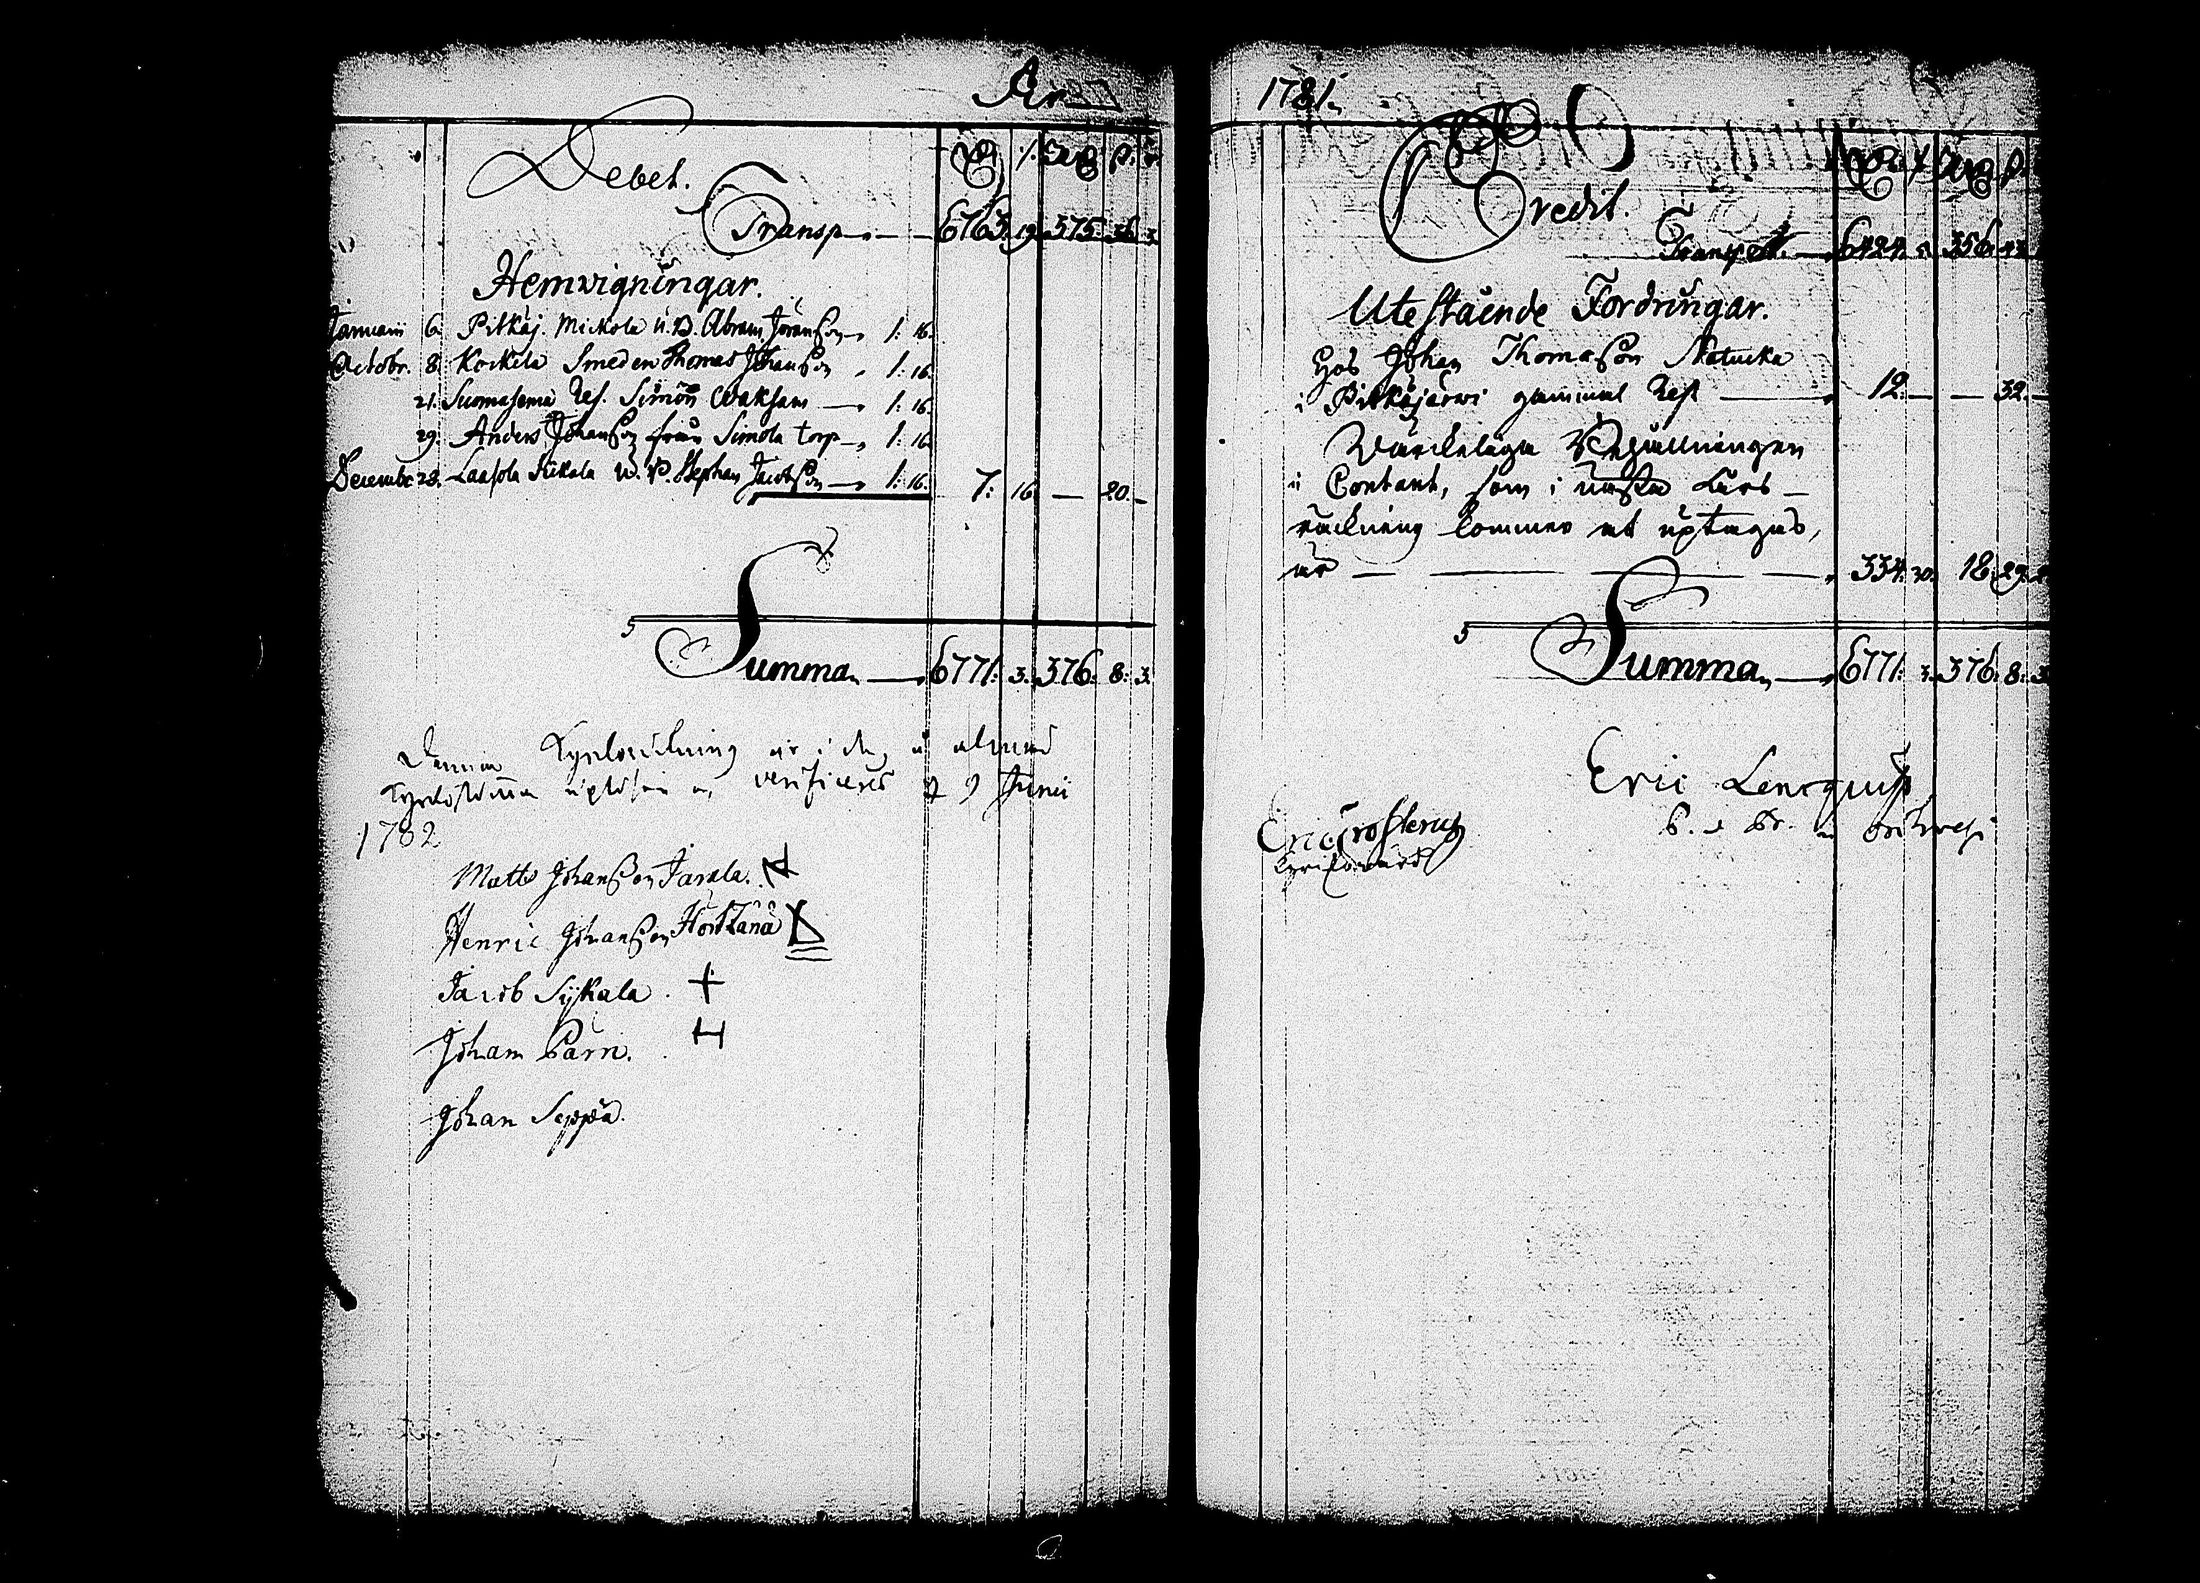 År
Debet.
Transp. 6763. 19. 375. 36. 3.
Hemvigningar.
Januarii 6. Pitkäj. Mickola u. B. Abram Jöranßon 1: 16.
Octobr. 8. Kockela Smeden Thomas Johanßon 1: 16.
21. Suomasema Simon 1: 16.
29. Anders Johanßon från Simola torp 1: 16.
Decembr 28. Laasola Sikala Stephan Jacobßon 1: 16. 7: 16. — 20. —
Summa 6771: 3. 376: 8: 3.
Denna är
Kyrkostämma upläsen verificeras d 9 Junii
1782
Matts Johanßon Jarala.
Henric Johanßon
Jacob Sykala
Johan Parn.
Johan Seppä.
1781.
Credit.
Transport. 6424. 356. 43.
Utestående Fordringar.
Hos Johan Thomaßon Natucka
i Pitkäjärwi gammal Rest 12. — — 32. —
Wärckeliga Behållningen
i Contant, som i nästa Kårs-
räckning kommer at uptagas,
är 334: 30. 18: 29:
Summa 6771: 3. 376: 8: 3.
Eric Lencquist
Eric